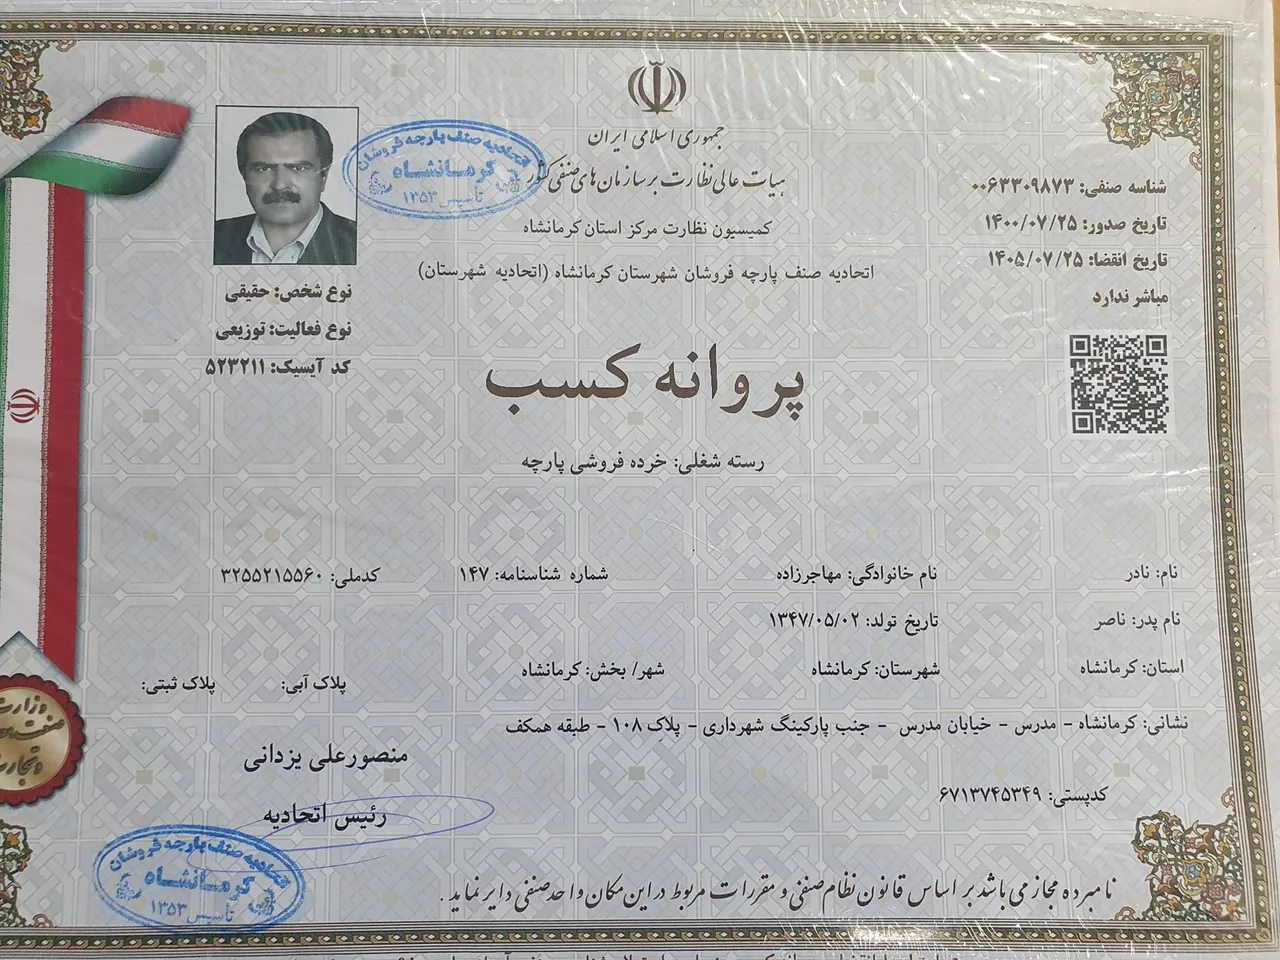 جمهوری اسلامی ایران
هیات عالی نظارت بر سازمان های صنفی کشور
کمیسیون نظارت مرکز استان کرمانشاه
اتحادیه صنف پارچه فروشان شهرستان کرمانشاه (اتحادیه شهرستان)
شناسه صنفی: ۰۰۶۳۳۰۹۸۷۳
تاریخ صدور: ۱۴۰۰/۰۷/۲۵
تاریخ انقضا: ۱۴۰۵/۰۷/۲۵
مباشر ندارد
اتحادیه صنف پارچه فروشان
کرمانشاه
تأسیس ۱۳۵۳
نوع شخص: حقیقی
نوع فعالیت: توزیعی
کد آیسیک: ۵۲۳۲۱۱
پروانه کسب
رسته شغلی: خرده فروشی پارچه
نام: نادر نام خانوادگی: مهاجرزاده شماره شناسنامه: ۱۴۷ کدملی: ۳۲۵۵۲۱۵۵۶۰
نام پدر: ناصر تاریخ تولد: ۱۳۴۷/۰۵/۰۲
استان: کرمانشاه شهرستان: کرمانشاه شهر/ بخش: کرمانشاه پلاک آبی: پلاک ثبتی:
نشانی: کرمانشاه - مدرس - خیابان مدرس - جنب پارکینگ شهرداری - پلاک ۱۰۸ - طبقه همکف
کدپستی: ۶۷۱۳۷۴۵۳۴۹
منصورعلی یزدانی
رئیس اتحادیه
اتحادیه صنف پارچه فروشان
کرمانشاه
تأسیس ۱۳۵۳
وزارت
صنعت
و تجارت
نامبرده مجاز می باشد بر اساس قانون نظام صنفی و مقررات مربوط در این مکان واحد صنفی دایر نماید.